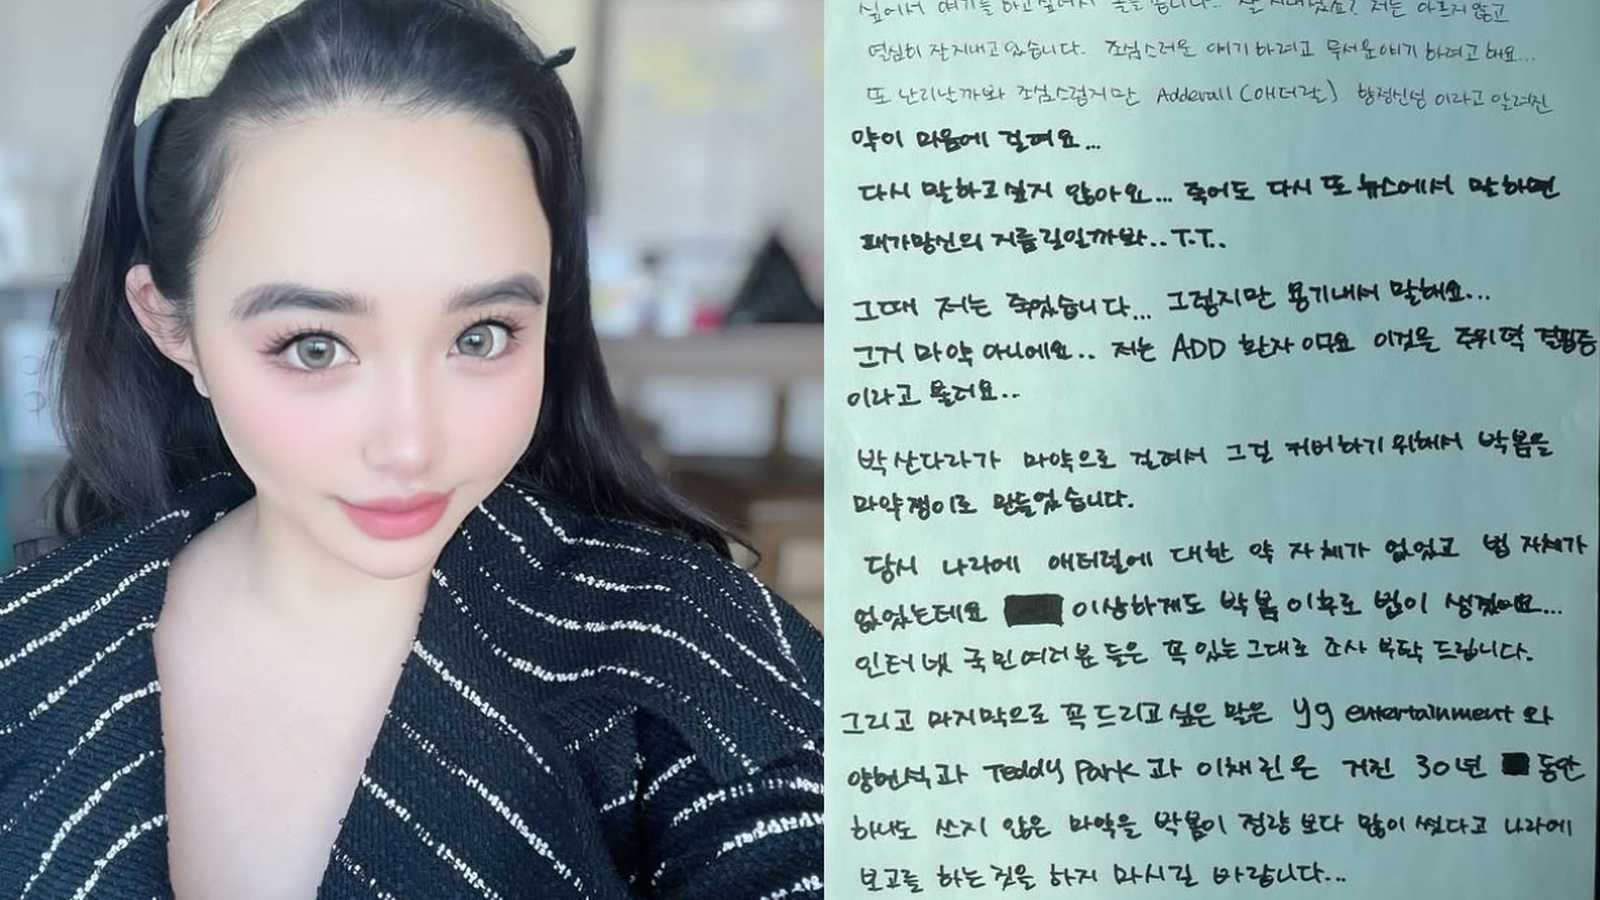 싶어서 얘기를 하고 싶어서
열심히 잘 지내고 있습니다. 조심스러운 얘기 하려고 무서운 얘기 하려고 해요...
또 난리날까봐 조심스럽지만 Adderall (애더럴) 향정신성 이라고 알려진
약이 마음에 걸려요...
다시 말하고 싶지 않아요... 죽어도 다시 또 뉴스에서 말하면
패가망신의 지름길일까봐.. T.T..
그때 저는 죽었습니다... 그렇지만 용기내서 말해요...
그거 마약 아니에요.. 저는 ADD 환자 이고요 이것을 주위력 결핍증
이라고 불러요..
박산다라가 마약으로 걸려서 그걸 커버하기 위해서 박봄을
마약쟁이로 만들었습니다.
당시 나라에 애더럴에 대한 약 자체가 없었고 법 자체가
없었는데요 이상하게도 박봄 이후로 법이 생겼어요...
인터넷 국민여러분 들은 꼭 있는그대로 조사 부탁 드립니다.
그리고 마지막으로 꼭 드리고 싶은 말은 yg entertainment 와
양현석과 Teddy Park 과 이채린은 거진 30년 동안
하나도 쓰지 않은 마약을 박봄이 정량 보다 많이 썼다고 나라에
보고를 하는것을 하지 마시길 바랍니다...